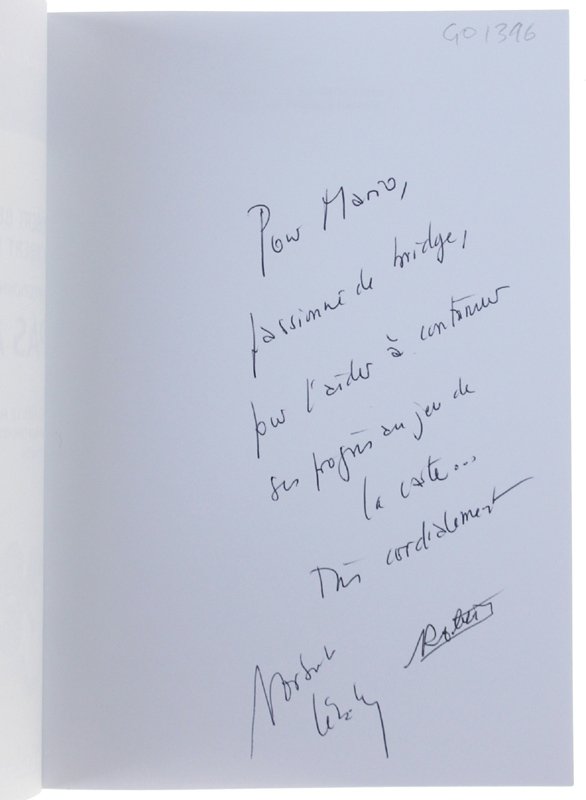 GO1396
Pour Mario,
passionné de bridge,
pour l'aider à continuer
ses progrès au jeu de
la carte...
Très cordialement
Norbert
Lébely
Robert